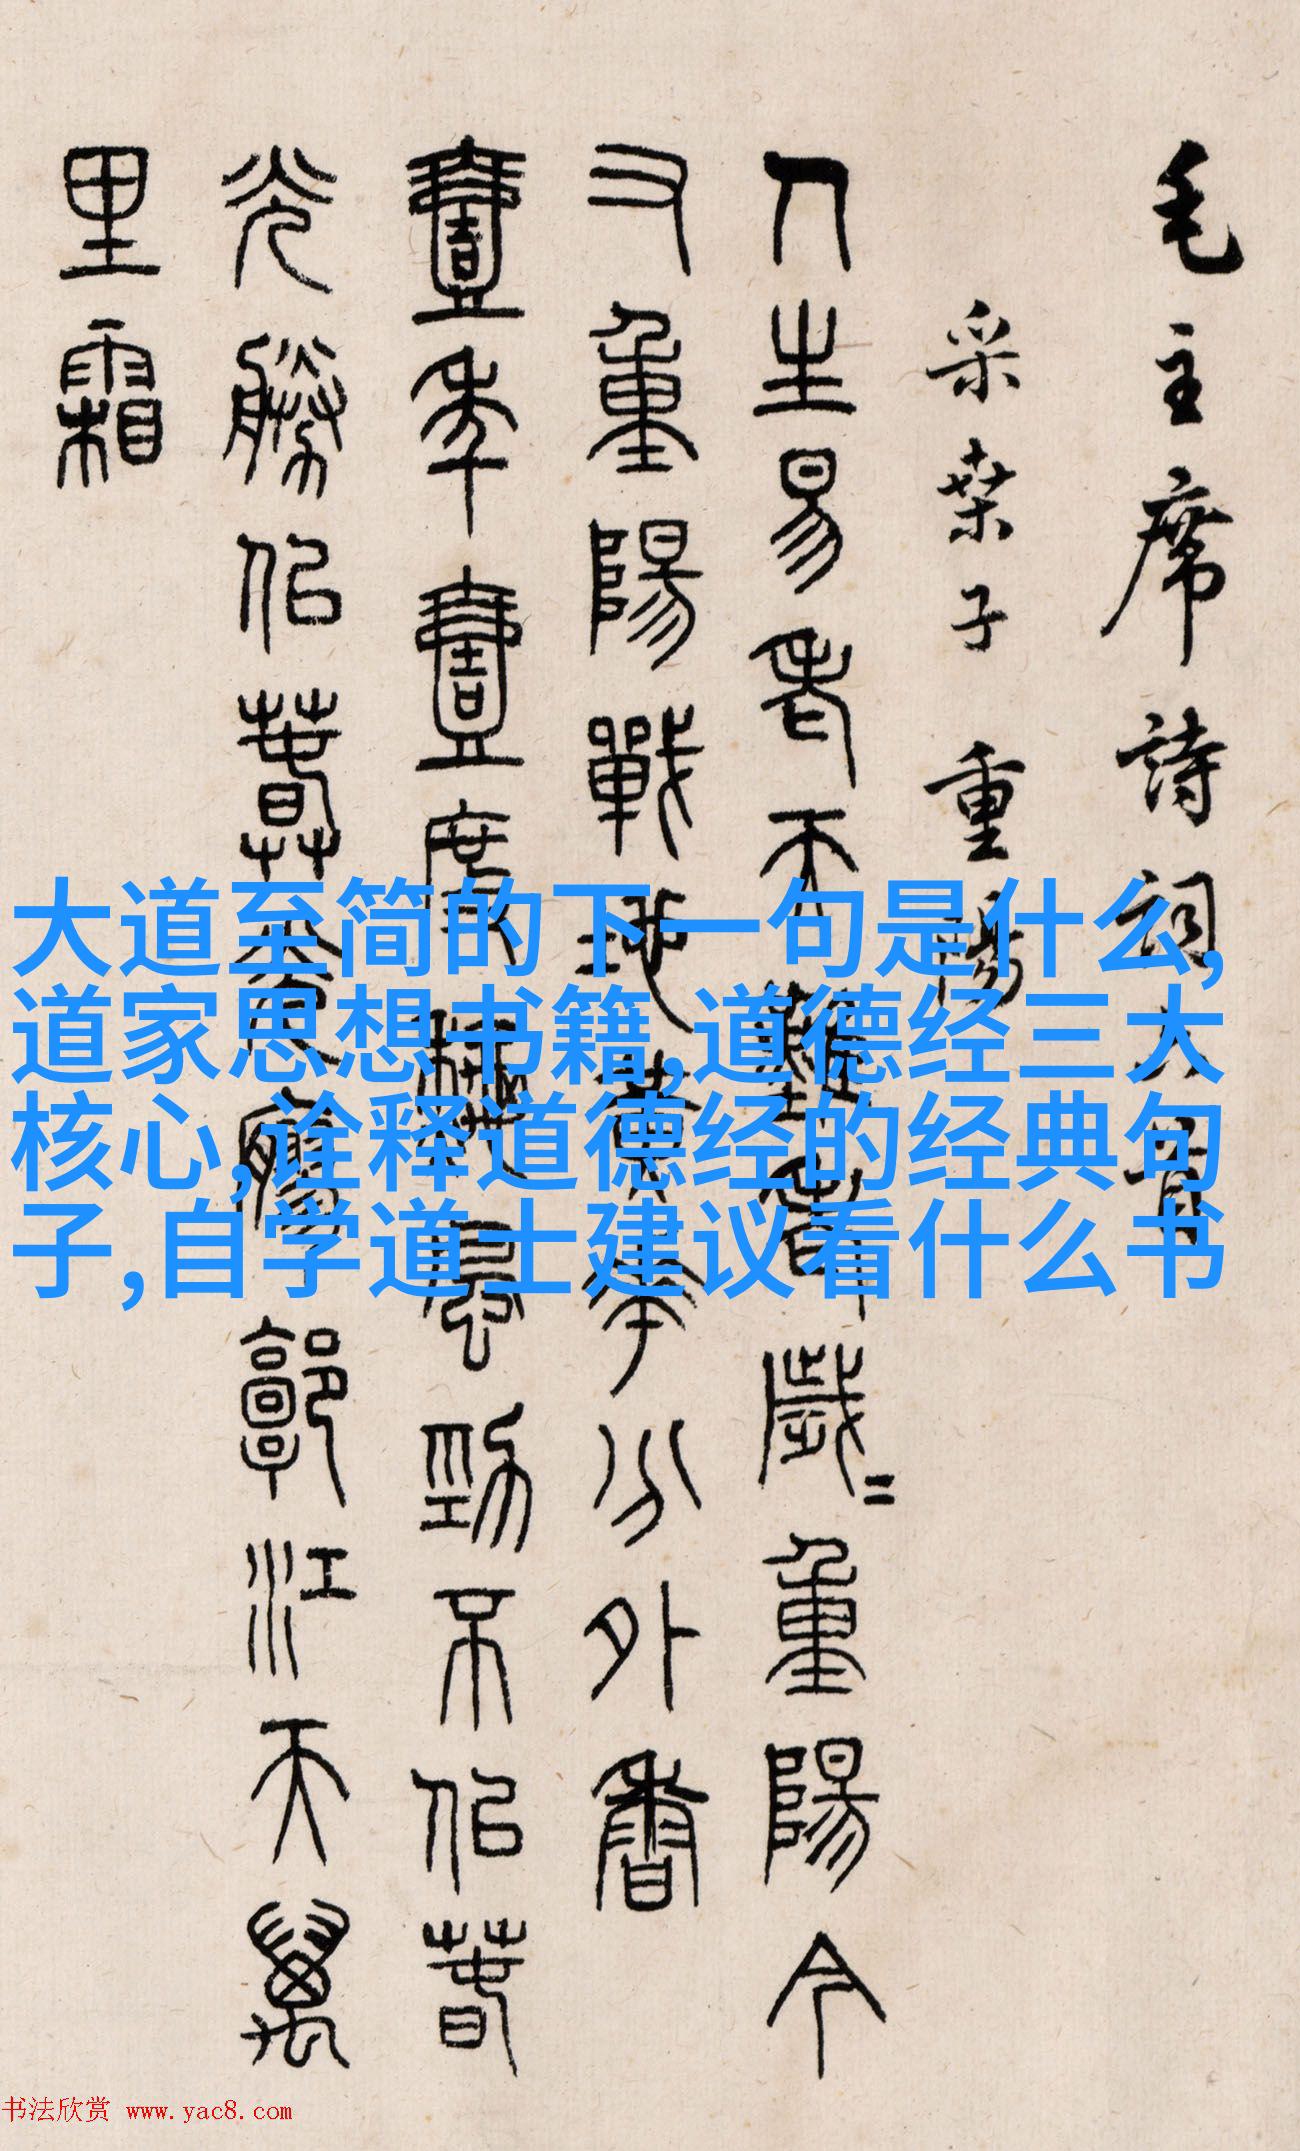 毛主席詩詞六首
采桒子 重陽
人生易老天難老歲=重陽今
又重陽戰地黃華分外香
壹年壹度秋風勁不佀萅
光勝佀萅光寥郭江天萬
里霜
大道至简的下一句是什么,
道家思想书籍,道德经三大
核心,诠释道德经的经典句
子,自学道士建议看什么书
书法欣赏 www.yac8.com